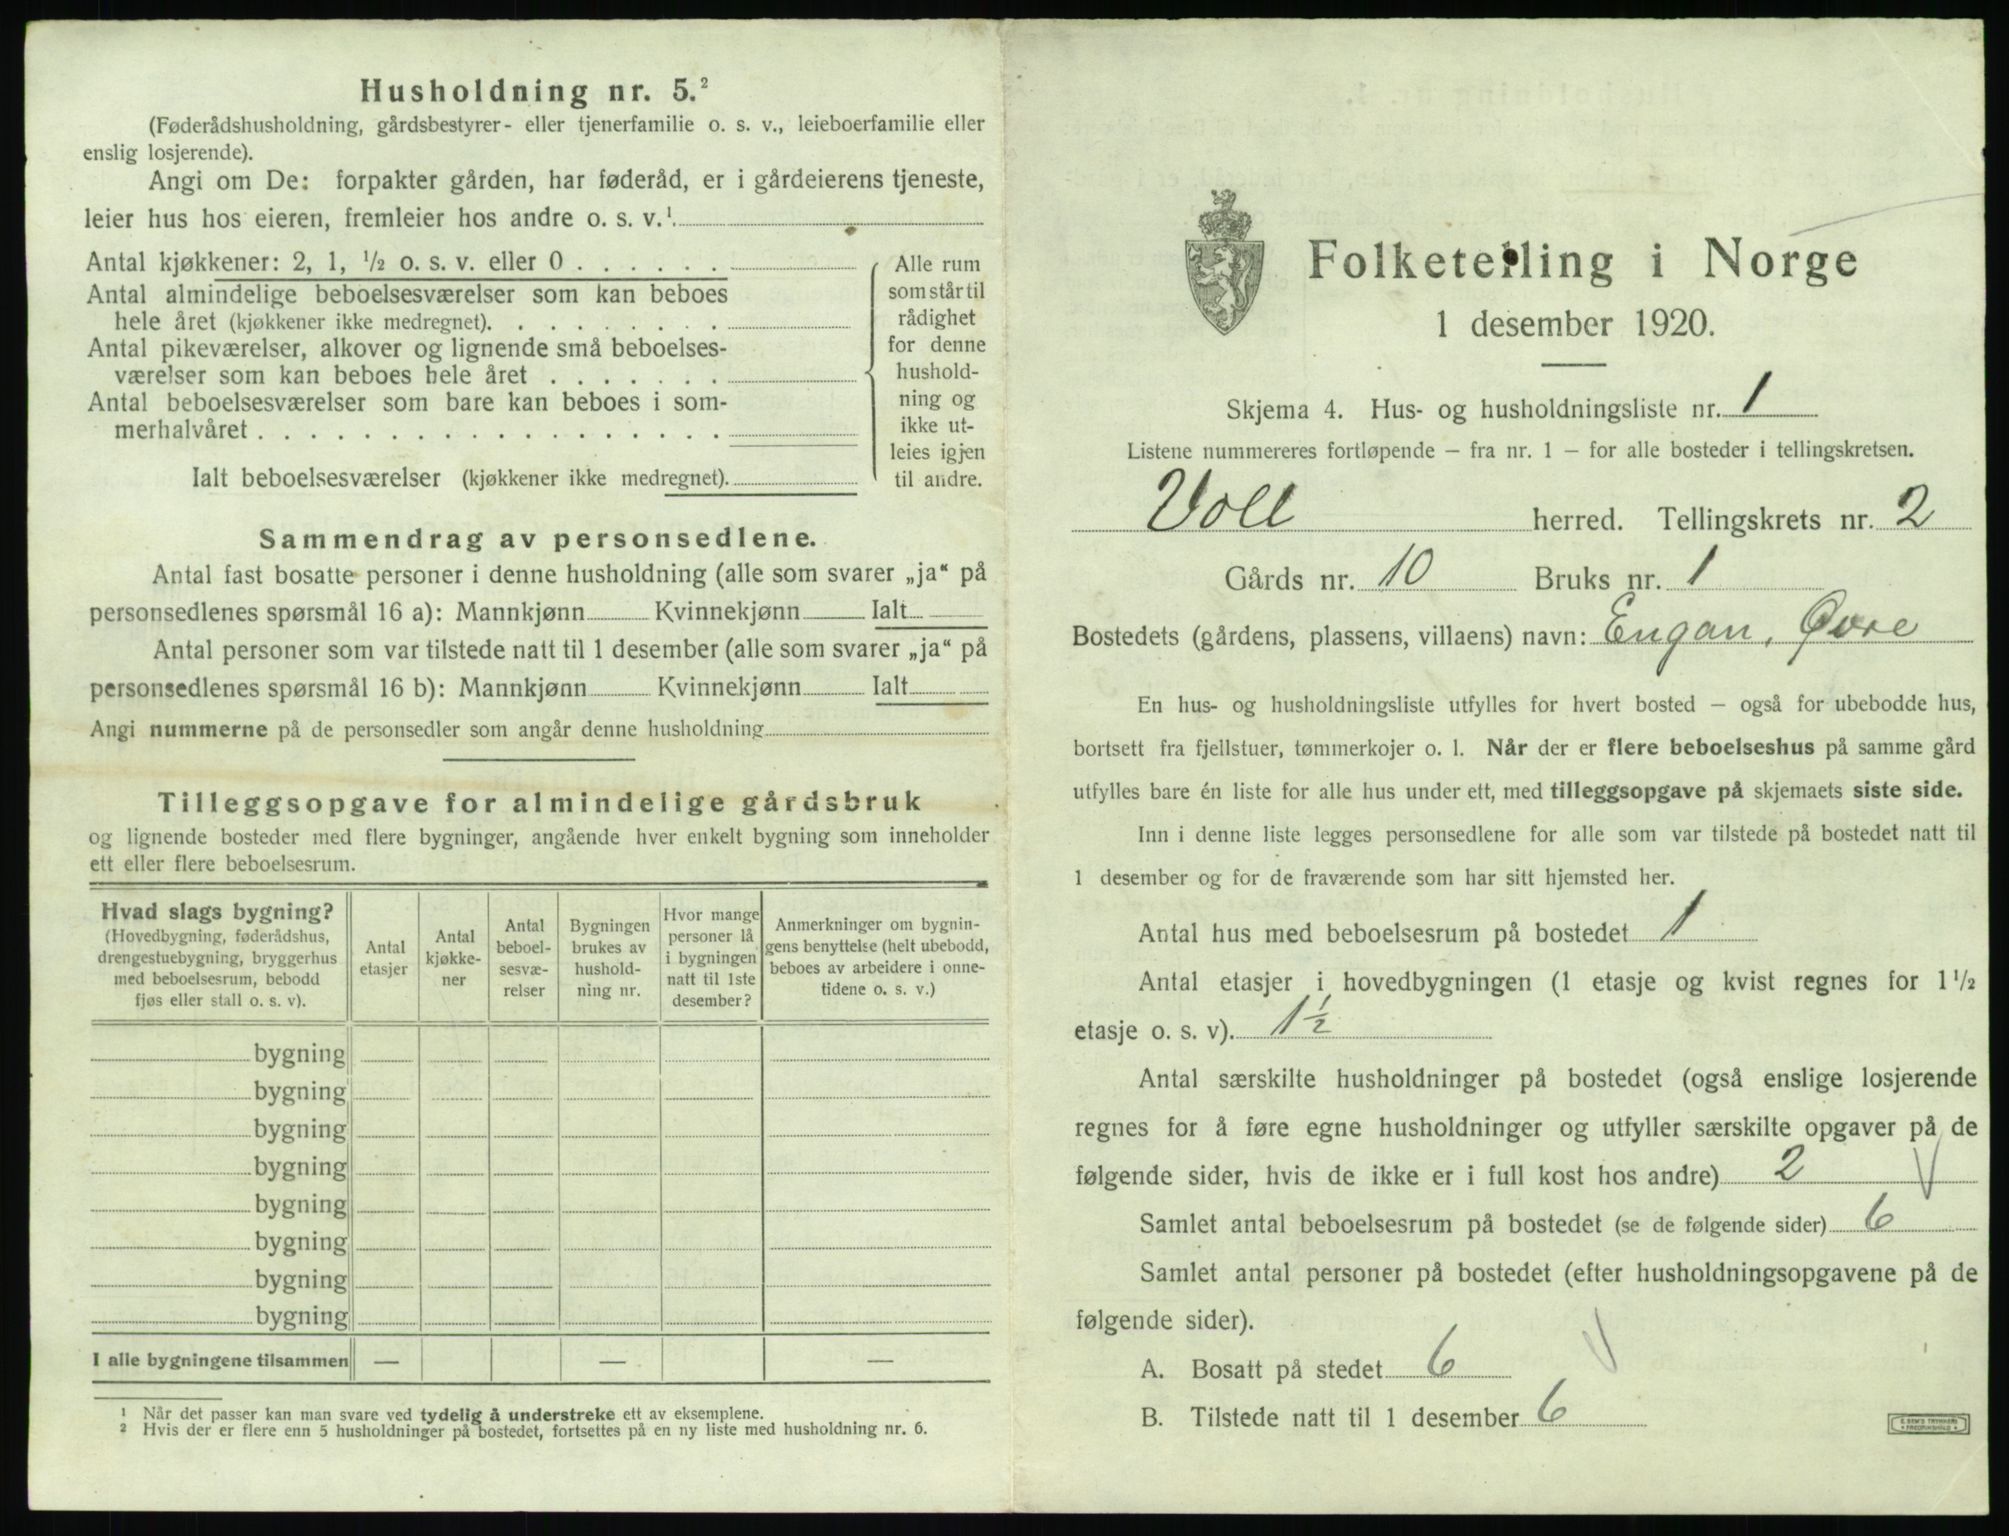 Husholdning nr. 5.²
(Føderådshusholdning, gårdsbestyrer- eller tjenerfamilie o. s. v., leieboerfamilie eller
enslig losjerende).
Angi om De: forpakter gården, har føderåd, er i gårdeierens tjeneste,
leier hus hos eieren, fremleier hos andre o. s. v.¹
Antal kjøkkener: 2, 1, ½ o. s. v. eller 0 . . . . . .
Antal almindelige beboelsesværelser som kan beboes
hele året (kjøkkener ikke medregnet). . . . . . . . .
Antal pikeværelser, alkover og lignende små beboelses-
værelser som kan beboes hele året . . . . . . .
Antal beboelsesværelser som bare kan beboes i som-
merhalvåret . . . . . . . . . . . . . . . . . .
Ialt beboelsesværelser (kjøkkener ikke medregnet).
Alle rum
som står til
rådighet
for denne
hushold-
ning og
ikke ut-
leies igjen
til andre.
Sammendrag av personsedlene.
Antal fast bosatte personer i denne husholdning (alle som svarer „ja“ på
personsedlenes spørsmål 16 a): Mannkjønn Kvinnekjønn Ialt
Antal personer som var tilstede natt til 1 desember (alle som svarer „ja“ på
personsedlenes spørsmål 16 b): Mannkjønn Kvinnekjønn Ialt
Angi nummerne på de personsedler som angår denne husholdning
Tilleggsopgave for almindelige gårdsbruk
og lignende bosteder med flere bygninger, angående hver enkelt bygning som inneholder
ett eller flere beboelsesrum.
Hvad slags bygning?
(Hovedbygning, føderådshus,
drengestuebygning, bryggerhus
med beboelsesrum, bebodd
fjøs eller stall o. s. v).
Antal
etasjer
Antal
kjøkke-
ner
Antal
beboel-
sesvæ-
relser
Bygningen
brukes av
hushold-
ning nr.
Hvor mange
personer lå
i bygningen
natt til 1ste
desember?
Anmerkninger om bygnin-
gens benyttelse (helt ubebodd,
beboes av arbeidere i onne-
tidene o. s. v.)
bygning
bygning
bygning
bygning
bygning
bygning
bygning
bygning
I alle bygningene tilsammen — — —
¹ Når det passer kan man svare ved tydelig å understreke ett av eksemplene.
² Hvis der er flere enn 5 husholdninger på bostedet, fortsettes på en ny liste med husholdning nr. 6.
Folketelling i Norge
1 desember 1920.
Skjema 4. Hus- og husholdningsliste nr. 1
Listene nummereres fortløpende – fra nr. 1 – for alle bosteder i tellingskretsen.
Voll herred. Tellingskrets nr. 2
Gårds nr. 10 Bruks nr. 1
Bostedets (gårdens, plassens, villaens) navn: Engan, Øvre
En hus- og husholdningsliste utfylles for hvert bosted – også for ubebodde hus,
bortsett fra fjellstuer, tømmerkojer o. l. Når der er flere beboelseshus på samme gård
utfylles bare én liste for alle hus under ett, med tilleggsopgave på skjemaets siste side.
Inn i denne liste legges personsedlene for alle som var tilstede på bostedet natt til
1 desember og for de fraværende som har sitt hjemsted her.
Antal hus med beboelsesrum på bostedet 1
Antal etasjer i hovedbygningen (1 etasje og kvist regnes for 1½
etasje o. s. v). 1½
Antal særskilte husholdninger på bostedet (også enslige losjerende
regnes for å føre egne husholdninger og utfyller særskilte opgaver på de
følgende sider, hvis de ikke er i full kost hos andre) 2
Samlet antal beboelsesrum på bostedet (se de følgende sider) 6
Samlet antal personer på bostedet (efter husholdningsopgavene på de
følgende sider).
A. Bosatt på stedet 6
B. Tilstede natt til 1 desember 6